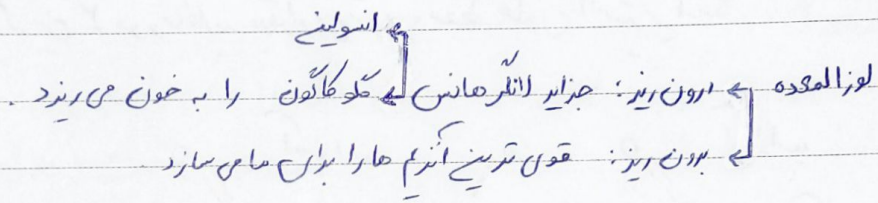 انسولین
لوزالمعده ← درون ریز: جزایر لانگرهانس ← گلوکاگون را به خون می ریزد.
← برون ریز: قوی ترین آنزیم ها را برای ما می سازد